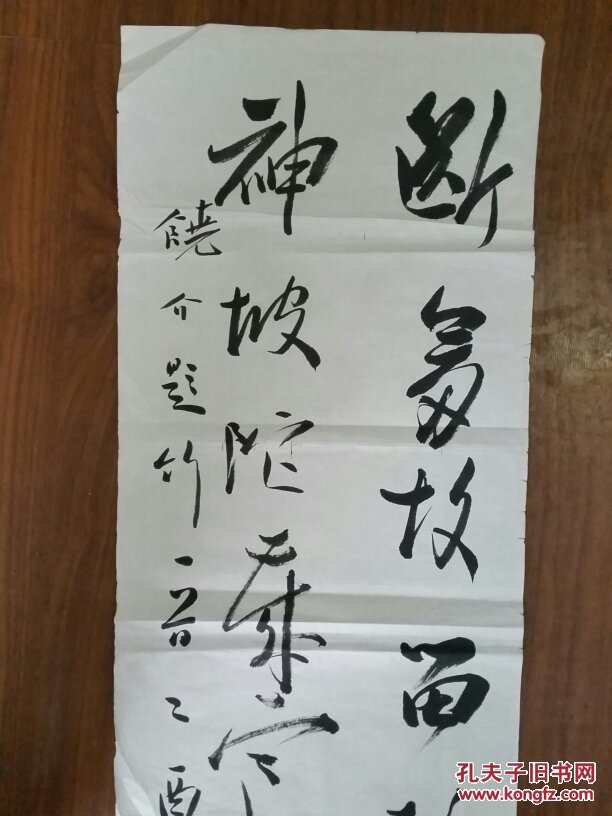 斷 故留
神坡陀
饒介題竹一首乙酉
孔夫子旧书网
www.kongfz.com